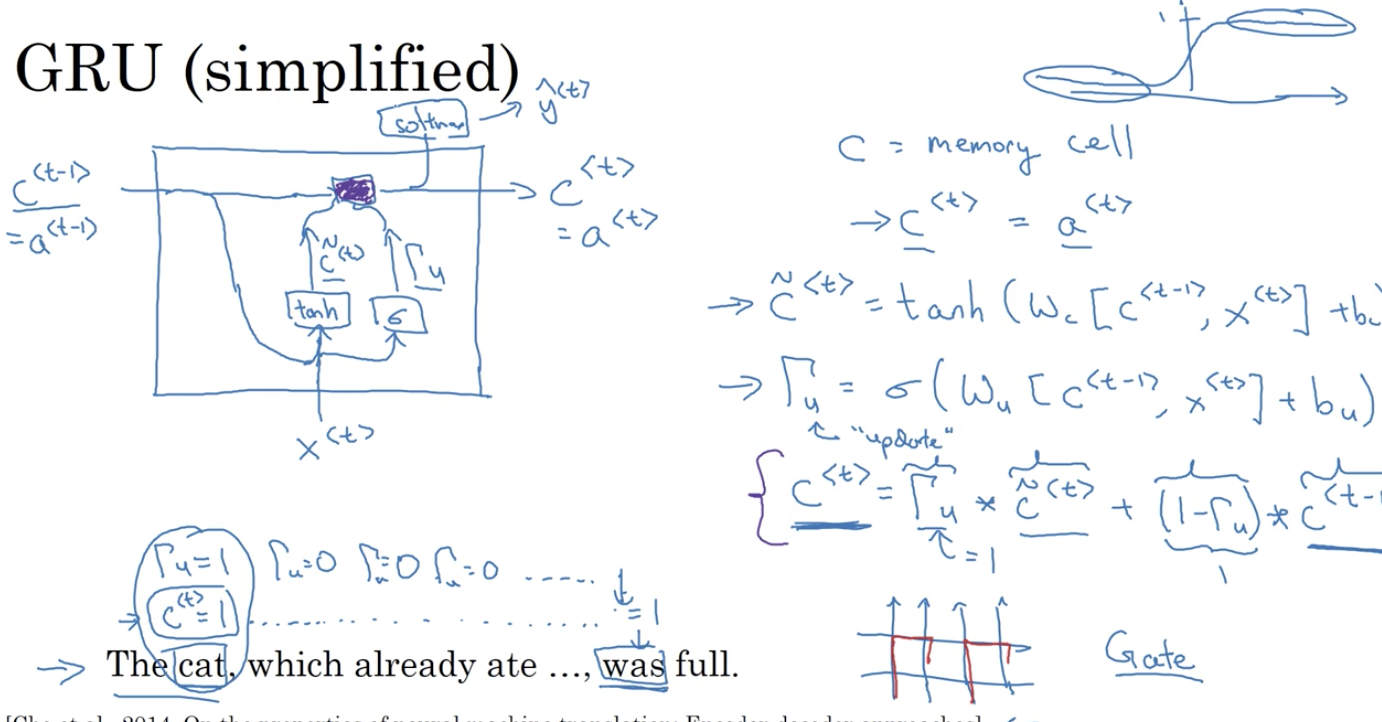 GRU (simplified)
softmax → ŷ<t>
c<t-1>
= a<t-1>
c<t>
= a<t>
c̃<t>
Γu
tanh
σ
x<t>
1
C = memory cell
→ c<t> = a<t>
→ c̃<t> = tanh(Wc[c<t-1>, x<t>] + bc
→ Γu = σ(Wu[c<t-1>, x<t>] + bu)
↑ "update"
c<t> = Γu * c̃<t> + (1-Γu) * c<t-1
↑ = 1
1
Γu=1 Γu=0 Γu=0 Γu=0 .....
c<t>=1 ........ = 1
→ The cat, which already ate ..., was full.
Gate
[Cho et al., 2014. On the properties of neural machine translation: Encoder-decoder approaches]